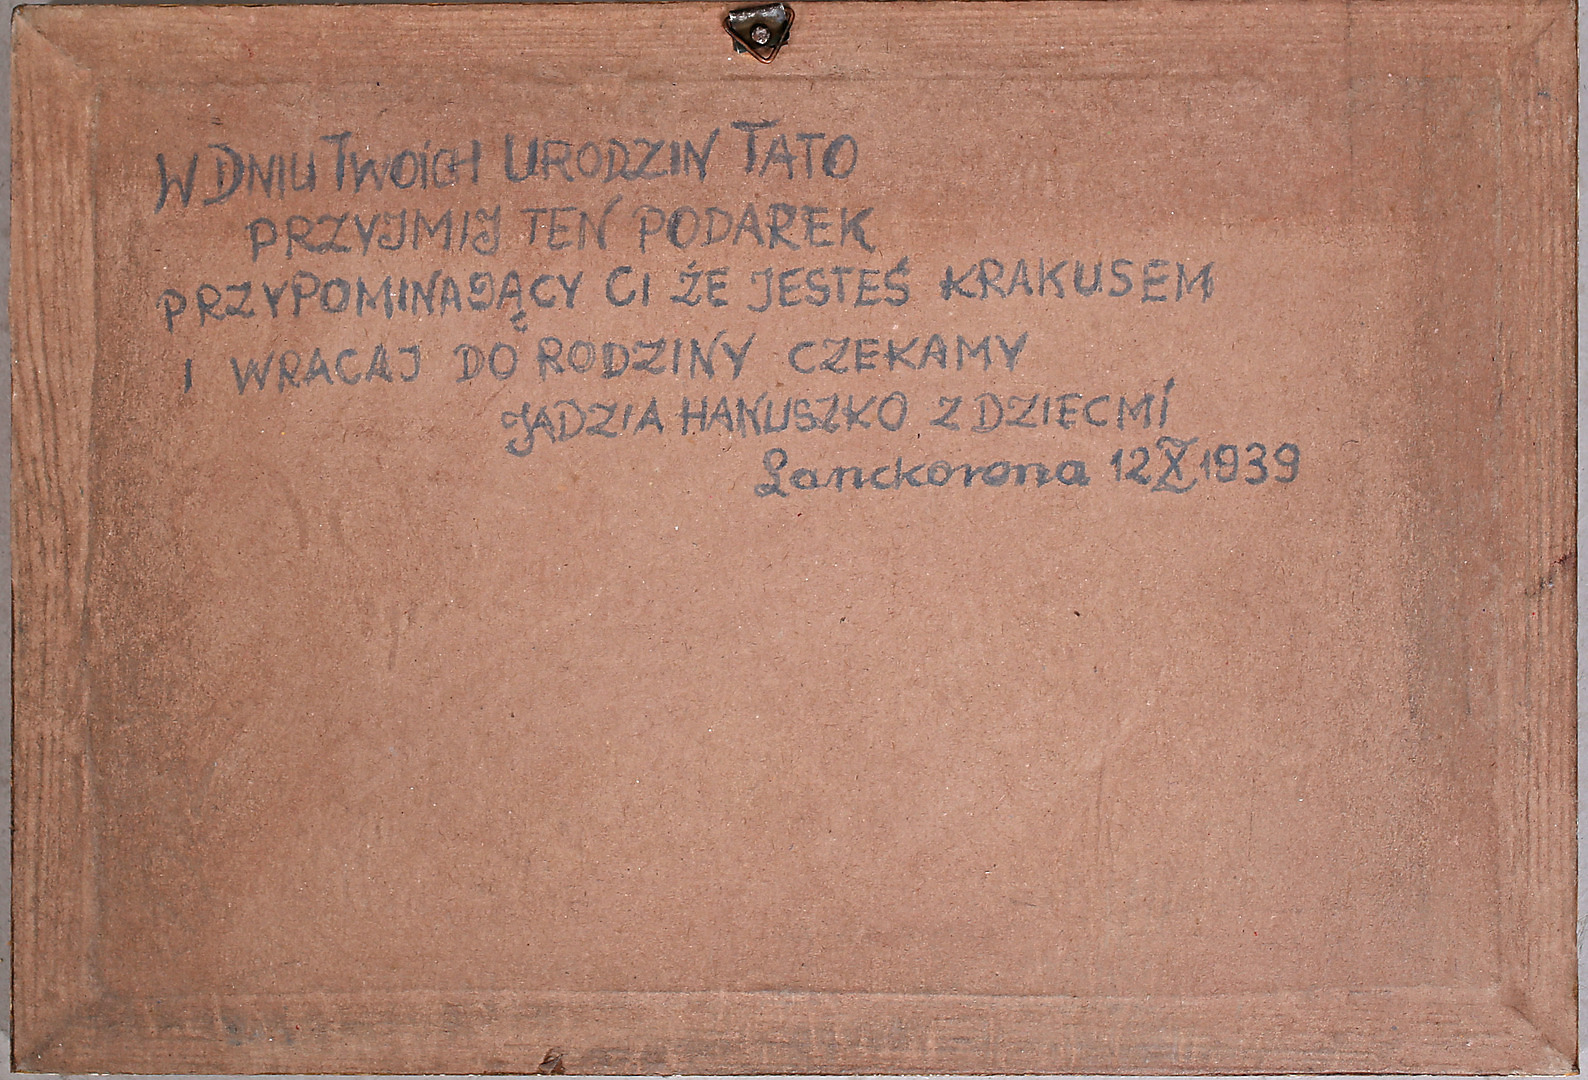 W DNIU TWOICH URODZIN TATO
PRZYJMIJ TEN PODAREK
PRZYPOMINAJĄCY CI ŻE JESTEŚ KRAKUSEM
I WRACAJ DO RODZINY CZEKAMY
JADZIA HANUSZKO Z DZIECMI
Lanckorona 12 X 1939